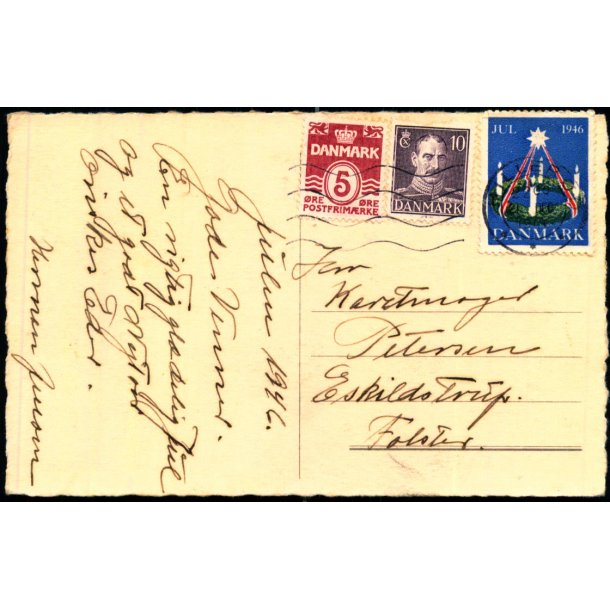 DANMARK
5
ØRE ØRE
POSTFRIMÆRKE
10
DANMARK
JUL 1946
DANMARK
Julen 1946.
Gode Venner.
En rigtig glædelig Jul
og et godt Nytaar
ønskes Eder.
Jenson
Hr
Karetmager
Petersen
Eskildstrup.
Falster.